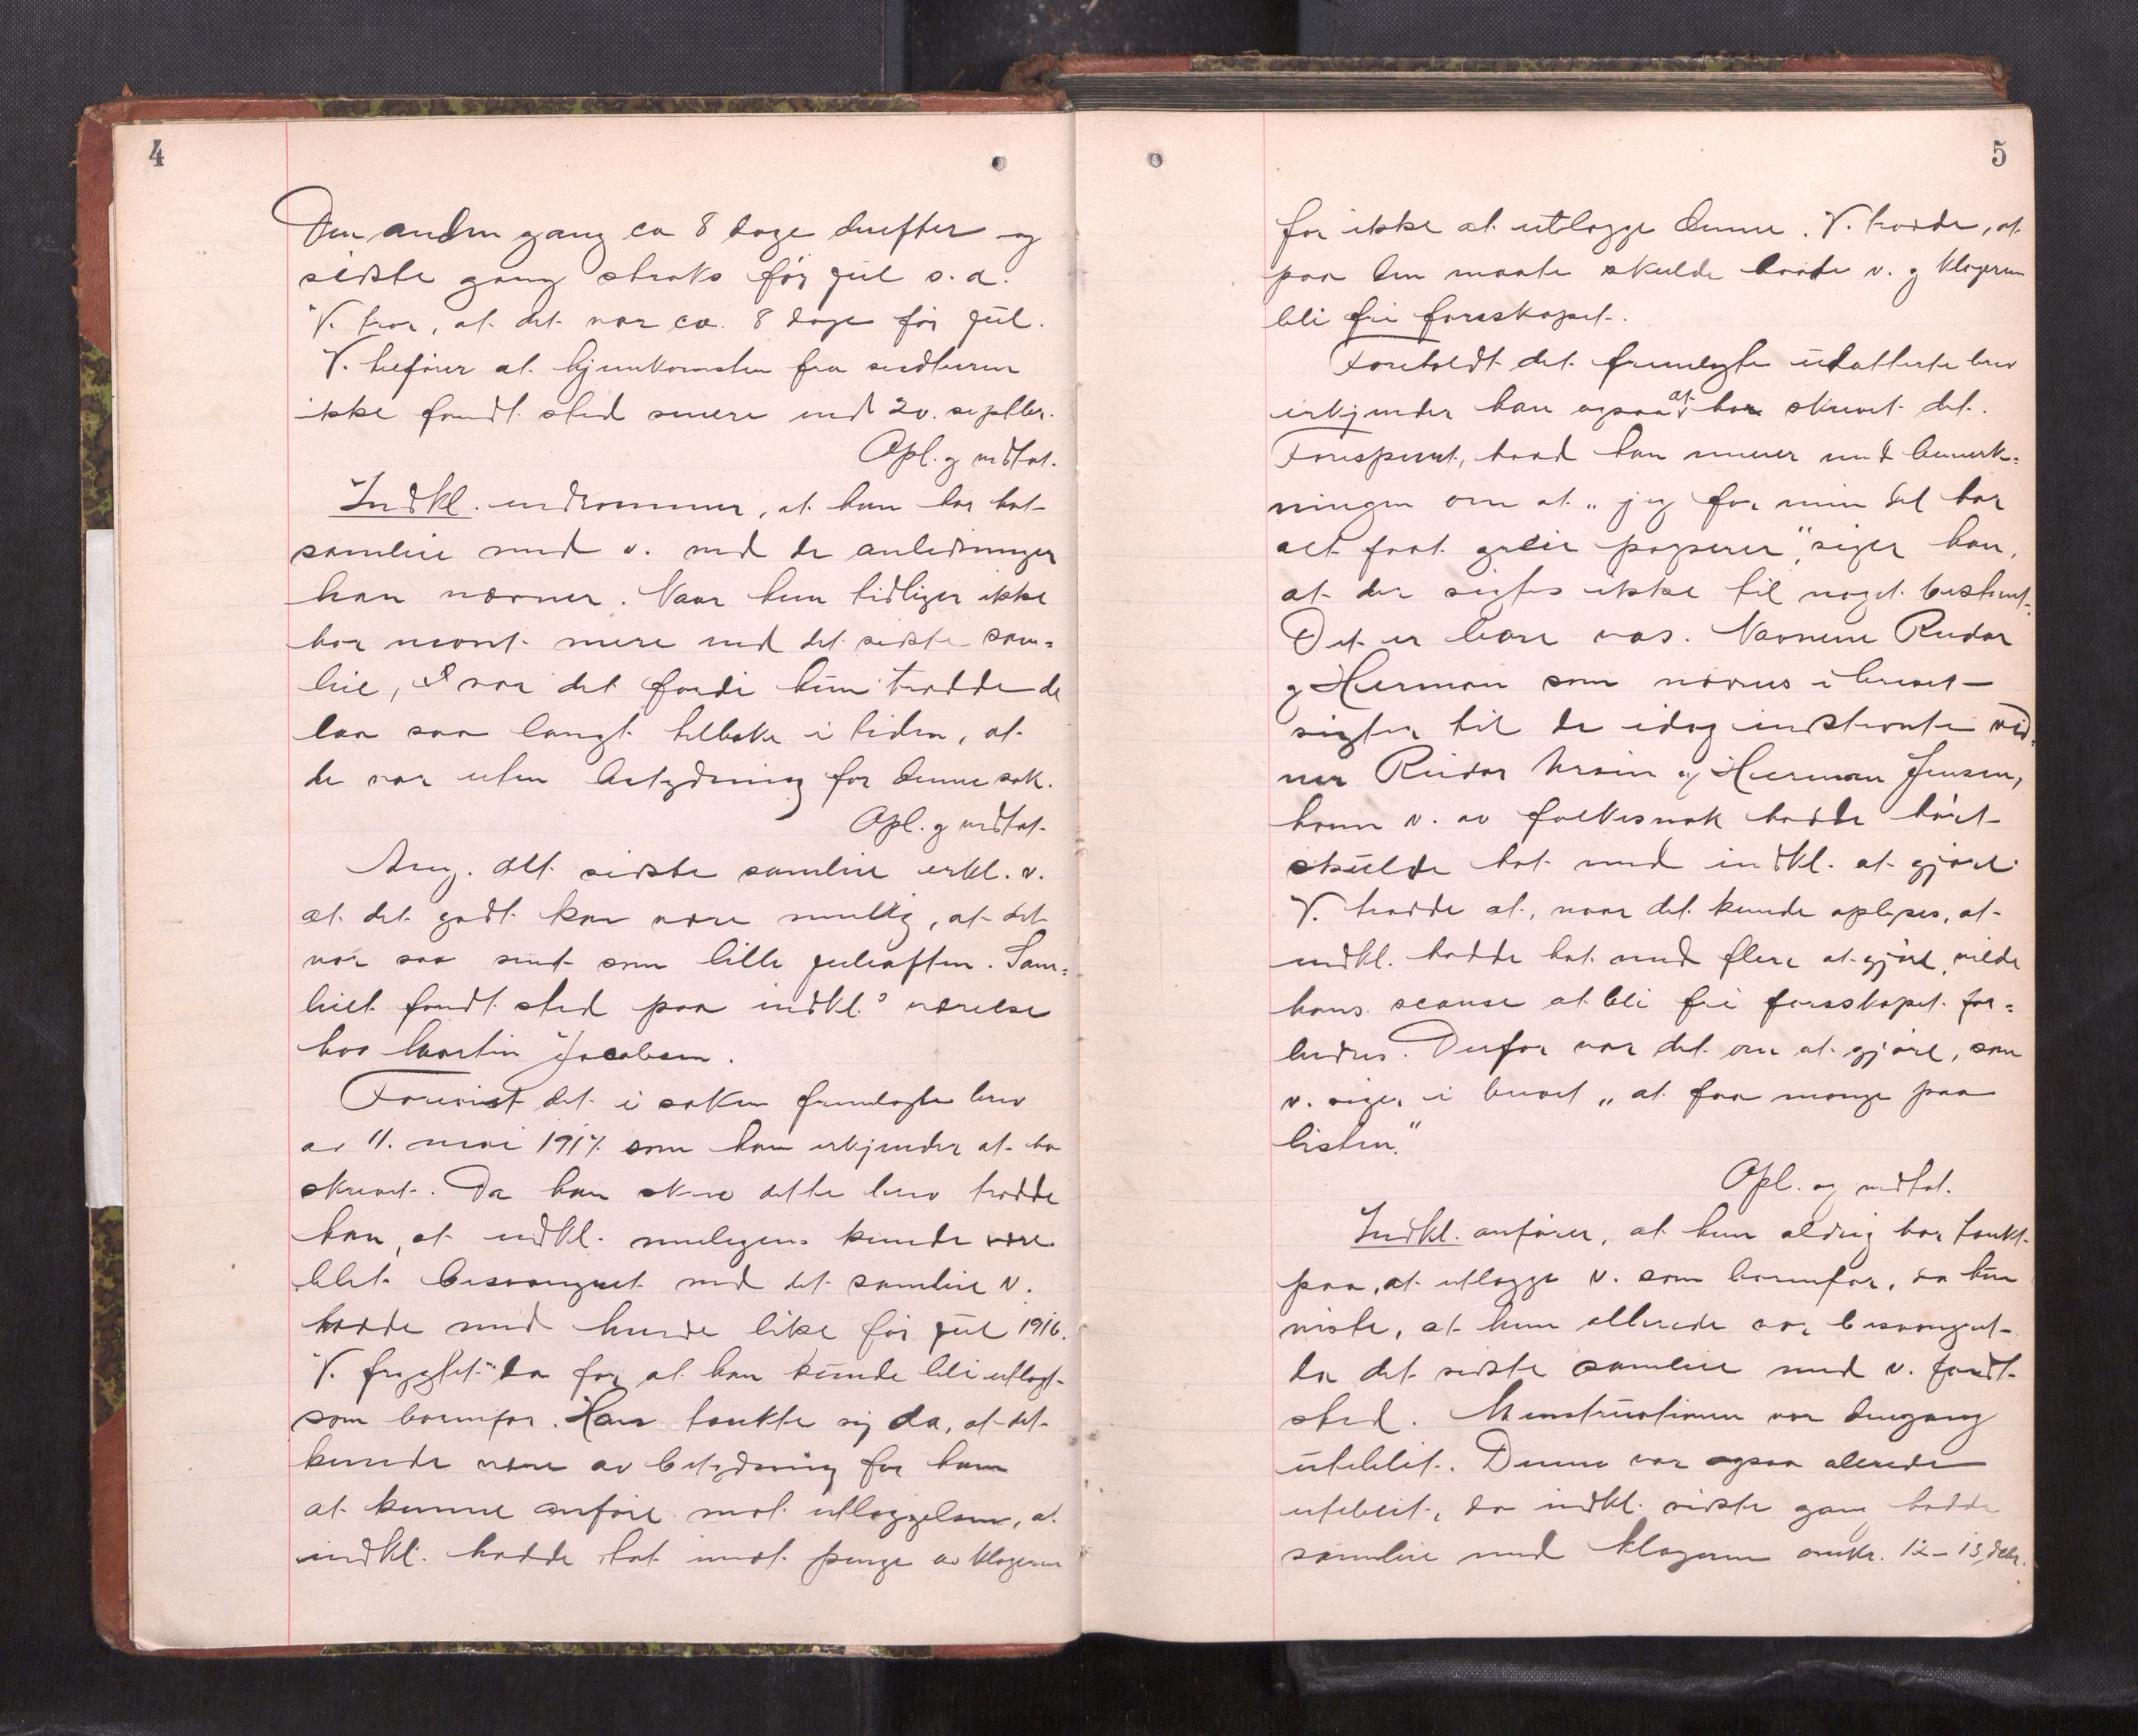 4
Den anden gang ca 8 dage derefter og
sidste gang straks før jul s.a.
V. tror, at det var ca. 8 dage før jul.
V. tilføier at hjemkomsten fra sildturen
ikke fandt sted senere end 20. septbr.
Opl. og vedtat.
Indkl. indrømmer, at hun har hat
samleie med v. ved de anledninger
han nævner. Naar hun tidligere ikke
har nævnt mere end det sidste sam=
leie, var det fordi hun trodde de
laa saa langt tilbake i tiden, at
de var uten betydning for denne sak.
Opl. og vedtat.
Ang. det sidste samleie erkl. v.
at det godt kan være mulig, at det
var saa sent som lille juleaften. Sam=
leiet fandt sted paa indkl.s værelse
hos Martin Jacobsen.
Forevist det i saken fremlagte brev
av 11. mai 1917 som han erkjender at ha
skrevet. Da han skrev dette brev trodde
han, at indkl. muligens kunde være
blit besvangret ved det samleie v.
hadde med hende like før jul 1916.
V. frygtet da for at han kunde bli utlagt
som barnefar. Han tænkte sig da, at det
kunde være av betydning for ham
at kunne anføre mot utlæggelsen, at
indkl. hadde tat imot penge av klageren
5
for ikke at utlægge denne. V. trodde, at
paa den maate skulde baade v. og klageren
bli fri farsskapet.
Foreholdt det fremlagte udatterte brev
erkjender han ogsaa at ha skrevet det.
Forespurt, hvad han mener med bemerk=
ningen om at „jeg for min del har
alt faat greie papirer“, siger han,
at der sigtes ikke til noget bestemt.
Det er bare vas. Navnene Reidar
og Herman som nævnes i brevet
sigter til de idag indstevnte vid=
ner Reidar og Herman Jensen,
hvem v. av folkesnak hadde hørt
skulde hat med indkl. at gjøre.
V. trodde at, naar det kunde oplyses, at
indkl. hadde hat med flere at gjøre, vilde
hans chanse at bli fri farsskapet for=
bedres. Derfor var det om at gjøre, som
v. siger i brevet „at faa mange paa
listen.“
Opl. og vedtat.
Indkl. anfører, at hun aldrig har tænkt
paa, at utlægge v. som barnefar, da hun
visste, at hun allerede var besvangret
da det sidste samleie med v. fandt
sted. Menstruationen var dengang
uteblit. Denne var ogsaa allerede
uteblit, da indkl. sidste gang hadde
samleie med klageren omkr. 12-13 debr.